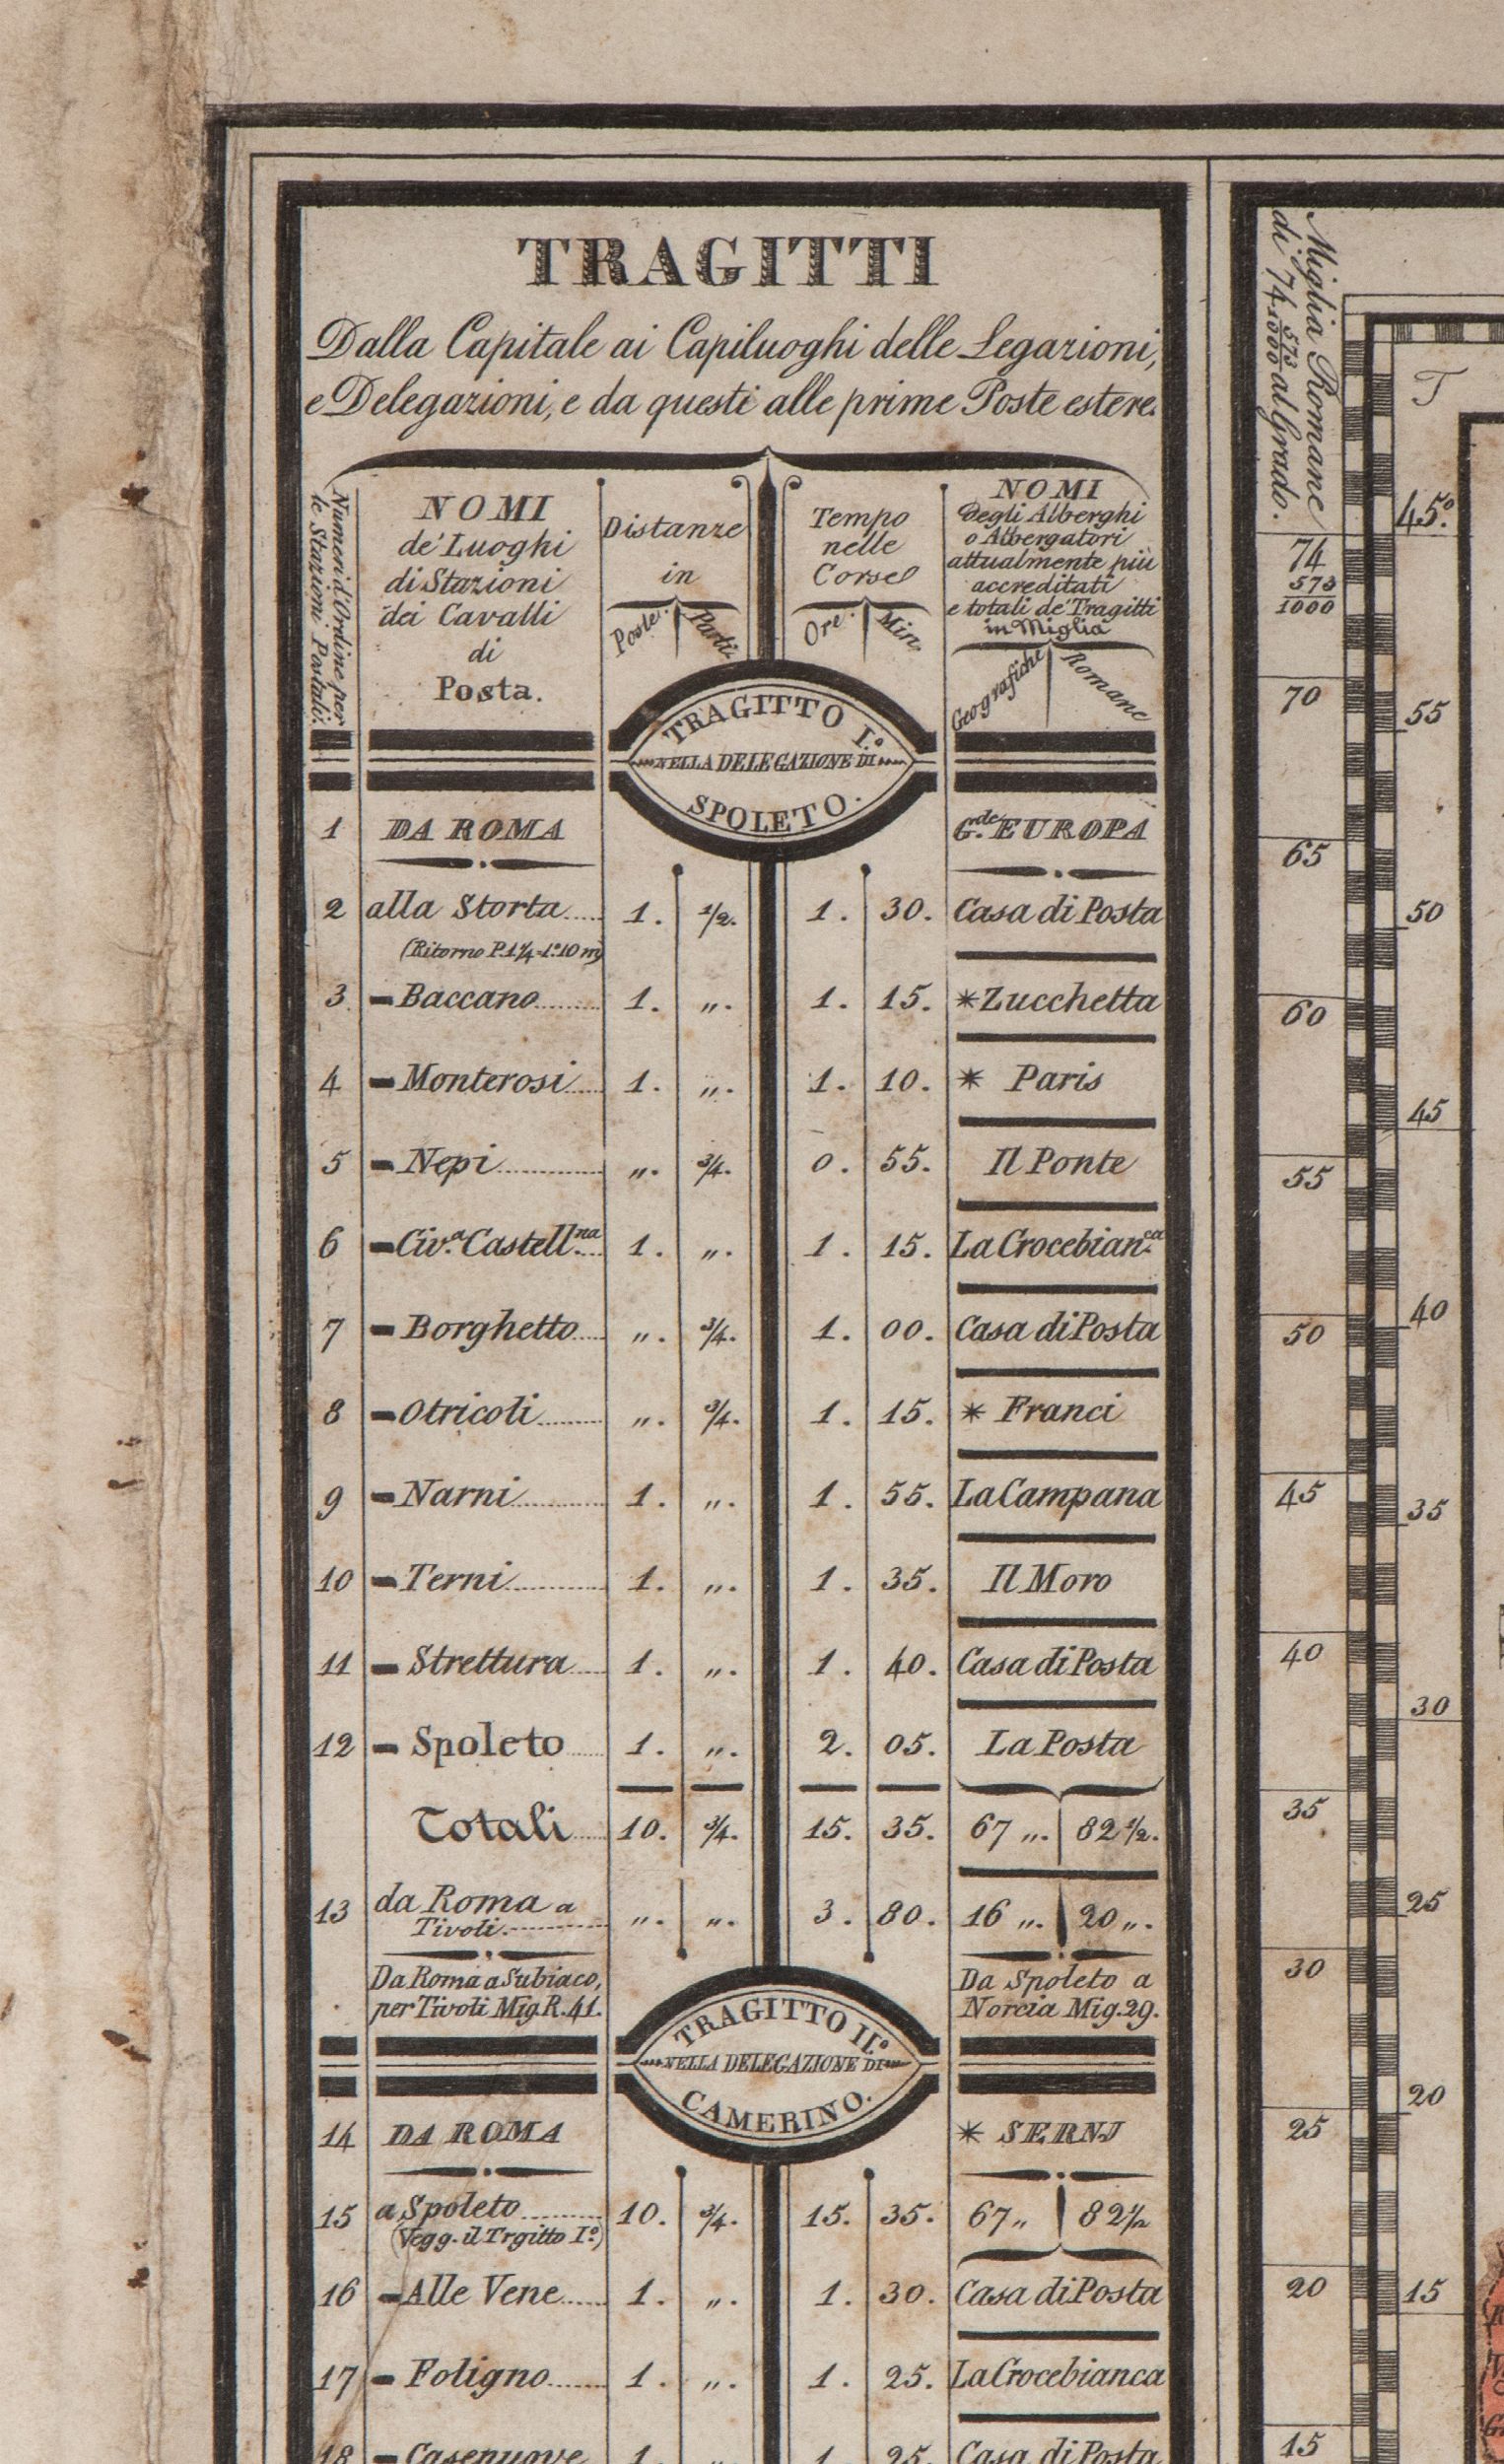 TRAGITTI
Dalla Capitale ai Capiluoghi delle Legazioni,
e Delegazioni, e da questi alle prime Poste estere.
Numeri d'Ordine per
le Stazioni Postali.
NOMI
de' Luoghi
di Stazioni
dei Cavalli
di
Posta.
Distanze
in
Poste. Parti.
Tempo
nelle
Corse
Ore. Min.
NOMI
degli Alberghi
o Albergatori
attualmente più
accreditati
e totali de' Tragitti
in Miglia
Geografiche Romane
TRAGITTO I.º
NELLA DELEGAZIONE DI
SPOLETO.
1 DA ROMA G.rde EUROPA
2 alla Storta 1. 1/2. 1. 30. Casa di Posta
(Ritorno P. 1 1/4 = 1.º 10 m)
3. - Baccano 1. ". 1. 15. *Zucchetta
4 - Monterosi 1. ". 1. 10. * Paris
5 - Nepi ". 3/4. 0. 55. Il Ponte
6 - Civ.a Castell.na 1. ". 1. 15. La Crocebian.ca
7 - Borghetto ". 3/4. 1. 00. Casa di Posta
8 - Otricoli ". 3/4. 1. 15. * Franci
9 - Narni 1. ". 1. 55. La Campana
10 - Terni 1. ". 1. 35. Il Moro
11 - Strettura 1. ". 1. 40. Casa di Posta
12 - Spoleto 1. ". 2. 05. La Posta
Totali 10. 3/4. 15. 35. 67 ". 82 1/2.
13 da Roma a
Tivoli. ". ". 3. 80. 16 ". 20 ".
Da Roma a Subiaco,
per Tivoli Mig. R. 41.
Da Spoleto a
Norcia Mig. 29.
TRAGITTO II.º
NELLA DELEGAZIONE DI
CAMERINO.
14 DA ROMA * SERNJ
15 a Spoleto 10. 3/4. 15. 35. 67 " 82 1/2
(Vegg. il Trgitto I.º)
16 - Alle Vene 1. ". 1. 30. Casa di Posta
17 - Foligno 1. ". 1. 25. La Crocebianca
18 - Casenuove 1. ". 1. 25. Casa di Posta
Miglia Romane
di 74 573/1000 al Grado.
74
573
1000
70
65
60
55
50
45
40
35
30
25
20
15
T
45º
55
50
45
40
35
30
25
20
15